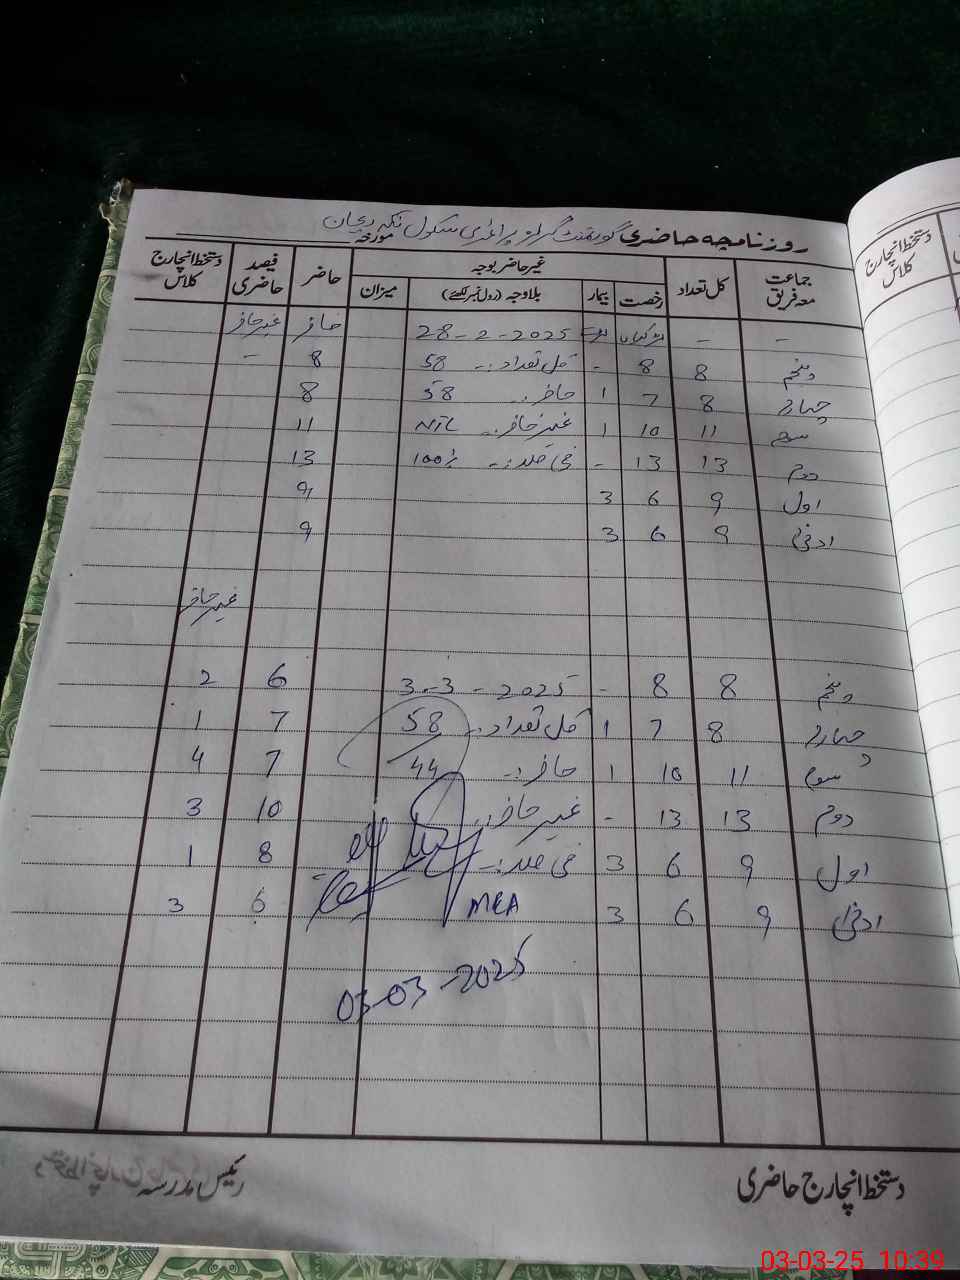 روزنامچہ حاضری گورنمنٹ گرلز پرائمری سکول نکہ
مورخہ
جماعت معہ فریق کل تعداد غیر حاضر بوجہ حاضر فیصد حاضری دستخط انچارج کلاس
رخصت بیمار بلاوجہ (رول نمبر لکھئے) میزان
- - لڑکیاں لڑکے 28-2-2025 حاضر غیر حاضر
پنجم 8 8 - کل تعداد :- 58 8 -
چہارم 8 7 1 حاضر :- 58 8
سوم 11 10 1 غیر حاضر :- Nil 11
دوم 13 13 - فی صد :- 100% 13
اول 9 6 3 9
ادنیٰ 9 6 3 9
غیر حاضر
پنجم 8 8 - 3-3-2025 6 2
چہارم 8 7 1 کل تعداد :- 58 7 1
سوم 11 10 1 حاضر :- 44 7 4
دوم 13 13 - غیر حاضر :- 10 3
اول 9 6 3 فی صد :- 8 1
ادنیٰ 9 6 3 MEA 6 3
03-03-2025
دستخط انچارج حاضری رئیس مدرسہ
دستخط انچارج کلاس
03-03-25 10:39